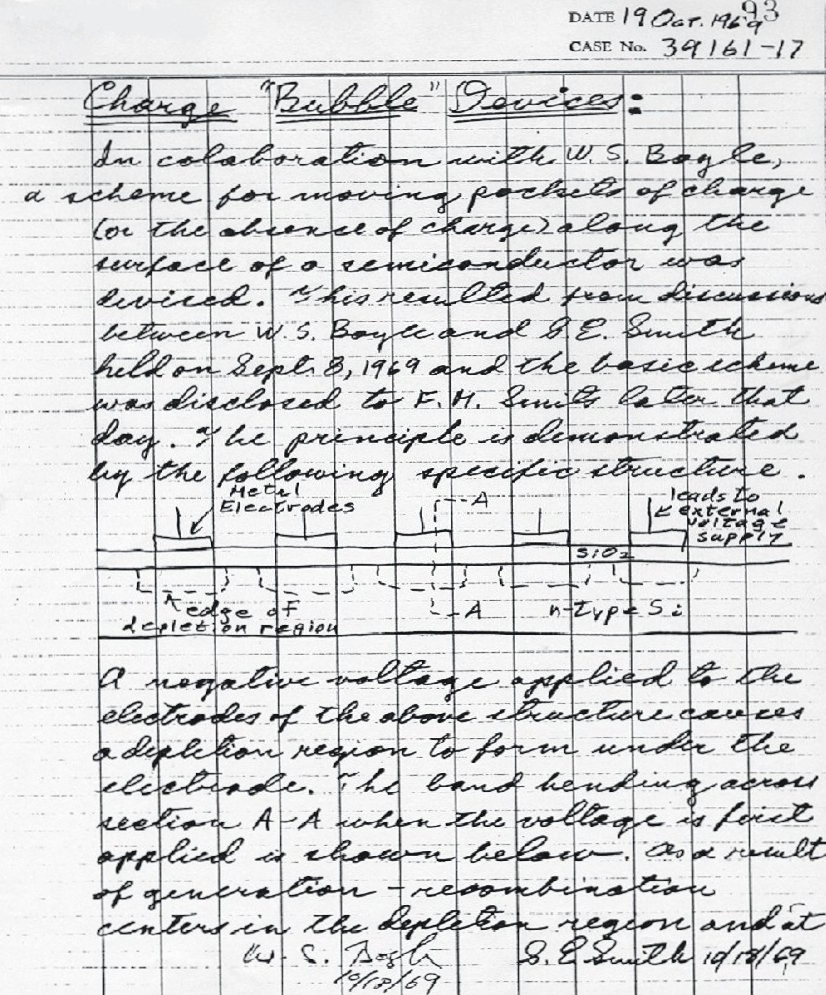 93
DATE 19 Oct. 1969
CASE No. 39161-17
Charge "Bubble" Devices:
In colaboration with W. S. Boyle,
a scheme for moving pockets of charge
(or the absence of charge) along the
surface of a semiconductor was
devised. This resulted from discussions
between W. S. Boyle and G E. Smith
held on Sept. 8, 1969 and the basic scheme
was disclosed to F. M. Smits later that
day. The principle is demonstrated
by the following specific structure.
Metal
Electrodes
A
leads to
external
voltage
supply
SiO2
edge of
depletion region
A
n-type Si
A negative voltage applied to the
electrodes of the above structure causes
a depletion region to form under the
electrode. The band bending across
section A-A when the voltage is first
applied is shown below. As a result
of generation - recombination
centers in the depletion region and at
W. S. Boyle
10/18/69
G. E Smith 10/18/69